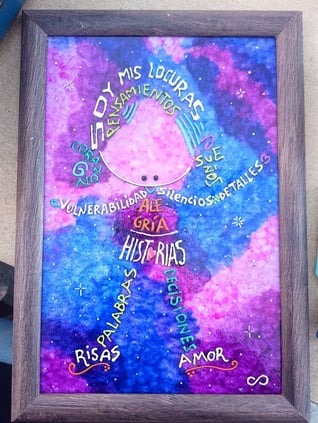 SOY MIS LOCURAS
PENSAMIENTOS
CORAZON
SUEÑOS
VULNERABILIDAD
SilENCiOS
DETALLES
ALE
GRÍA
HISTORIAS
PALABRAS
DECISIONES
RISAS
AMOR